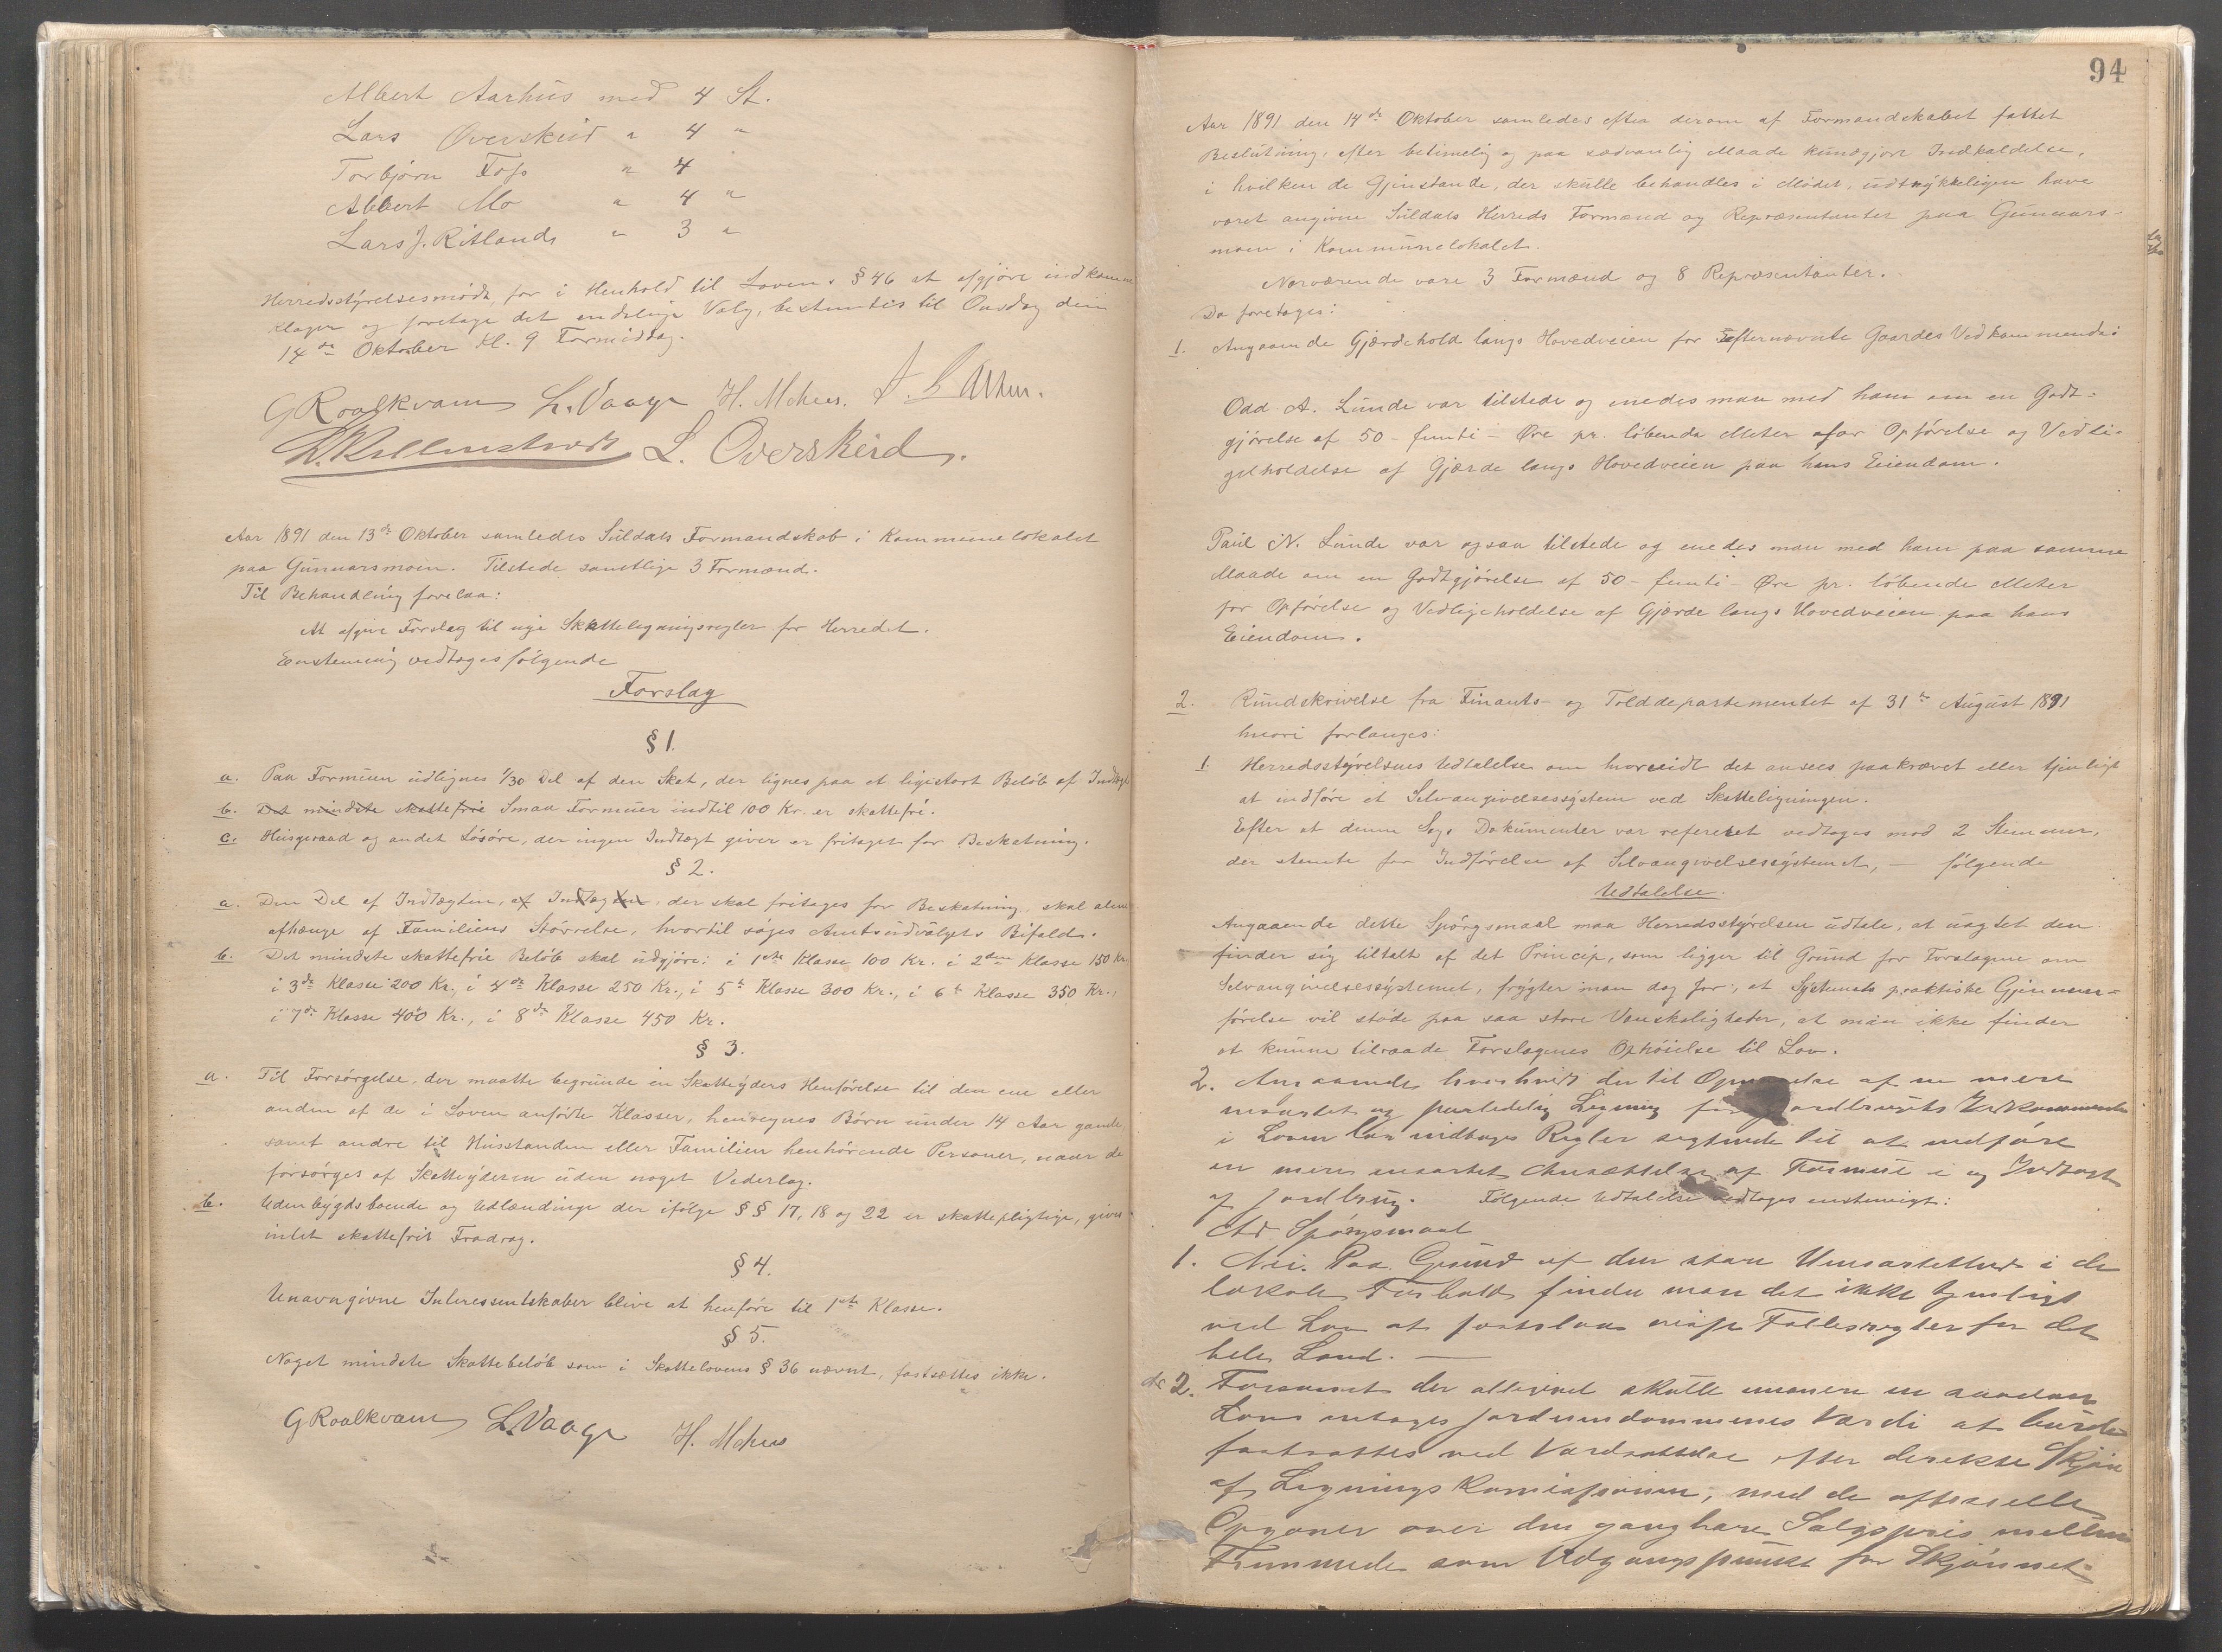 Albert Aarhus med 4 St.
Lars Overskeid " 4 "
Torbjørn Foss " 4 "
Albert Mo " 4 "
Lars J. Ritland " 3 "
Herredsstyrelsesmøde, for i Henhold til Lovens § 46 at afgjøre indkomne
Klager og foretage det endelige Valg, bestemtes til Onsdag den
14de Oktober Kl. 9 Formiddag.
G Roalkvam L. Vaage H. Mehus.
L. Overskeid.
Aar 1891 den 13de Oktober samledes Suldals Formandskab i Kommunelokalet
paa Gunnarsmoen. Tilstede samtlige 3 Formænd.
Til Behandling forelaa:
At afgive Forslag til nye Skatteligningsregler for Herredet.
Enstemmig vedtages følgende
Forslag
§ 1.
a. Paa Formuen udlignes 1/30 Del af den Skat, der lignes paa et ligestort Beløb af Indtægt
b. Det mindste skattefrie Smaa Formuer indtil 100 Kr. er skattefri.
c. Husgeraad og andet Løsøre, der ingen Indtægt giver er fritaget for Beskatning.
§ 2.
a. Den Del af Indtægten, af Indtægten, der skal fritages for Beskatning, skal alene
afhænge af Familiens Størrelse, hvortil søges Amtsudvalgets Bifald.
b. Det mindste skattefrie Beløb skal udgjøre: i 1ste Klasse 100 Kr. i 2den Klasse 150 Kr.
i 3de Klasse 200 Kr., i 4de Klasse 250 Kr., i 5te Klasse 300 Kr., i 6te Klasse 350 Kr.,
i 7de Klasse 400 Kr., i 8de Klasse 450 Kr.
§ 3.
a. Til Forsørgelse, der maatte begrunde en Skatteyders Henførelse til den ene eller
anden af de i Loven anførte Klasser, henregnes Børn under 14 Aar gamle,
samt andre til Husstanden eller Familien henhørende Personer, naar de
forsørges af Skatteyderen uden noget Vederlag.
b. Udenbygdsboende og Udlændinge der ifølge §§ 17, 18 og 22 er skattepligtige, gives
intet skattefrit Fradrag.
§ 4.
Unavngivne Interessentskaber blive at henføre til 1ste Klasse.
§ 5.
Noget mindste Skattebeløb som i Skattelovens § 36 nævnt, fastsættes ikke.
G Roalkvam L. Vaage H. Mehus
94
Aar 1891 den 14de Oktober samledes efter derom af Formandskabet fattet
Beslutning, efter betimelig og paa sædvanlig Maade kundgjort Indkaldelse,
i hvilken de Gjenstande, der skulle behandles i Mødet, udtrykkeligen have
været angivne Suldals Herreds Formænd og Repræsentanter paa Gunnars-
moen i Kommunelokalet.
Nærværende vare 3 Formænd og 8 Repræsentanter.
Da foretoges:
1. Angaaende Gjærdehold langs Hovedveien for Efternævnte Gaardes Vedkommende:
Odd A. Lunde var tilstede og enedes man med ham om en Godt-
gjørelse af 50 - femti - Øre pr. løbende Meter for Opførelse og Vedli-
geholdelse af Gjærde langs Hovedveien paa hans Eiendom.
Paul N. Lunde var ogsaa tilstede og enedes man med ham paa samme
Maade om en Godtgjørelse af 50 - femti - Øre pr. løbende Meter
for Opførelse og Vedligeholdelse af Gjærde langs Hovedveien paa hans
Eiendom.
2. Rundskrivelse fra Finants- og Tolddepartementet af 31te August 1891
hvori forlanges:
1. Herredsstyrelsens Udtalelse om hvorvidt det ansees paakrævet eller tjenligt
at indføre et Selvangivelsessystem ved Skatteligningen.
Efter at denne Sags Dokumenter var refereret vedtages mod 2 Stemmer,
der stemte for Indførelse af Selvangivelsessystemet, — følgende
Udtalelse.
Angaaende dette Spørgsmaal maa Herredsstyrelsen udtale, at uagtet den
finder sig tiltalt af det Princip, som ligger til Grund for Forslagene om
Selvangivelsessystemet, frygter man dog for, at Systemets praktiske Gjennem-
førelse vil støde paa saa store Vanskeligheder, at man ikke finder
at kunne tilraade Forslagenes Ophøielse til Lov.
2. Angaaende hvorhvidt der til Opnaaelse af en mere
ensartet og paalidelig Ligning for Jordbrugets Vedkommende
i Loven bør indtages Regler sigtende til at medføre
en mere ensartet Ansættelse af Formue i og Indtægt
af Jordbrug. Følgende Udtalelse vedtages enstemmigt:
Ad Spørgsmaal
1. Nei. Paa Grund af den store Uensartethed i de
lokale Forhold finder man det ikke tjenligt
ved Lov at fastslaa visse Fællesregler for det
hele Land. —
2. Forsaavidt der alligevel skulle en saadan
Lov antages Jordeiendommenes Værdi at burde
fastsættes ved Værdsættelse efter direkte Skjøn
af Ligningskomissionen, med de officielle
Opgaver over den gangbare Salgspris mellem
Fremmede som Udgangspunkt for Skjønnet.